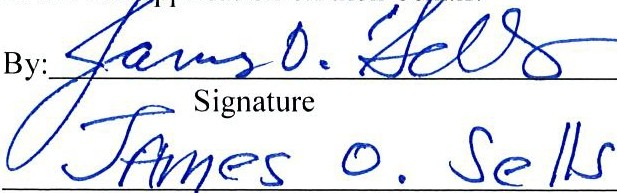 By: James O. Sells
Signature
James O. Sells